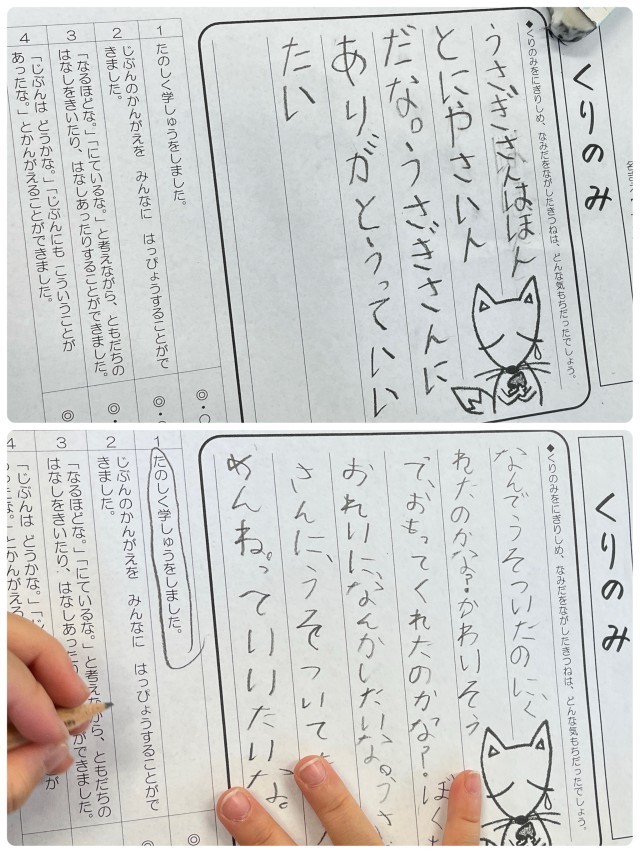 くりのみ
◆くりのみをにぎりしめ、なみだをながしたきつねは、どんな気もちだったでしょう。
うさぎさんはほん
とにやさいん
だな。うさぎさんに
ありがとうっていい
たい
1 たのしく学しゅうをしました。
2 じぶんのかんがえを みんなに はっぴょうすることがで
きました。
3 「なるほどな。」「にているな。」と考えながら、ともだちの
はなしをきいたり、はなしあったりすることができました。
4 「じぶんは どうかな。」「じぶんにも こういうことが
あったな。」とかんがえることができました。
◎・○
◎・
◎
くりのみ
◆くりのみをにぎりしめ、なみだをながしたきつねは、どんな気もちだったでしょう。
なんでうそついたのに、く
れたのかな?かわいそう
で、おもってくれたのかな?ぼくも
おれいに、なんかしたいな。うさ
さんに、うそついて
めんね。っていいたいな。
1 たのしく学しゅうをしました。
2 じぶんのかんがえを みんなに はっぴょうすることがで
きました。
3 「なるほどな。」「にているな。」と考えながら、ともだちの
はなしをきいたり、はなしあった ができました。
4 「じぶんは どうかな。」「じ
とかんがえる
◎